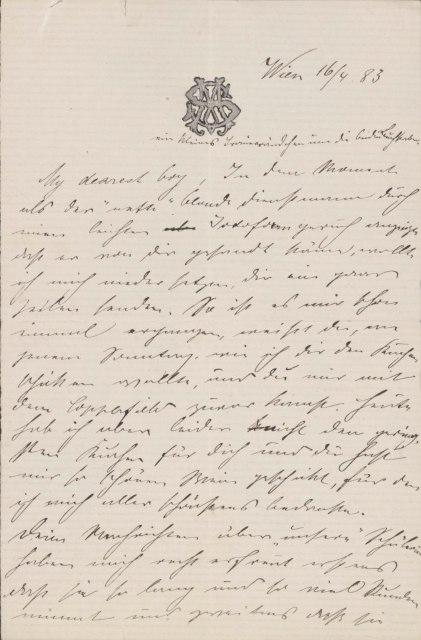 Wien 16/4 83
ein kleines Trauerrändchen um die
My dearest boy, In dem Moment
als der "nette" blonde Dienstmann durch
einen leichten Jodoformgeruch anzeigte
daß er von dir gesandt käme, wollte
ich mich niedersetzen, dir ein paar
Zeilen senden. So ist es mir schon
einmal ergangen, weißt du, an
jenem Sonntag, wie ich dir den Kuchen
schicken wollte, und du mir mit
dem Copperfield zuvor kamst. Heute
hab ich aber leider nicht den gering-
sten Kuchen für dich und du hast
mir so schönen Wein geschickt, für den
ich mich aller schönstens bedanke.
Deine Nachrichten über "unsere" Schülerin
haben mich recht erfreut erstens
daß sie so lang und so viel Stunden
nimmt und zweitens daß sie